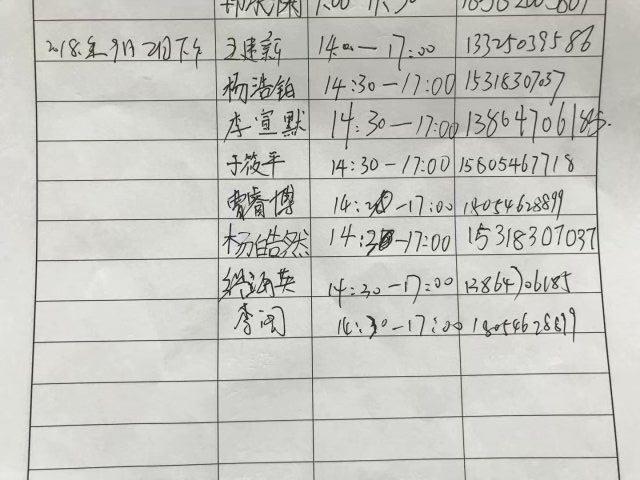 2018年9月2日下午 王建新 14:00—17:00 13325039586
杨浩铂 14:30—17:00 15318307037
李宣默 14:30—17:00 13864706185
于筱平 14:30—17:00 15805467718
贾睿博 14:30—17:00 18054628899
杨皓然 14:30—17:00 15318307037
英 14:30—17:00 13864706185
李闯 14:30—17:00 18054628899